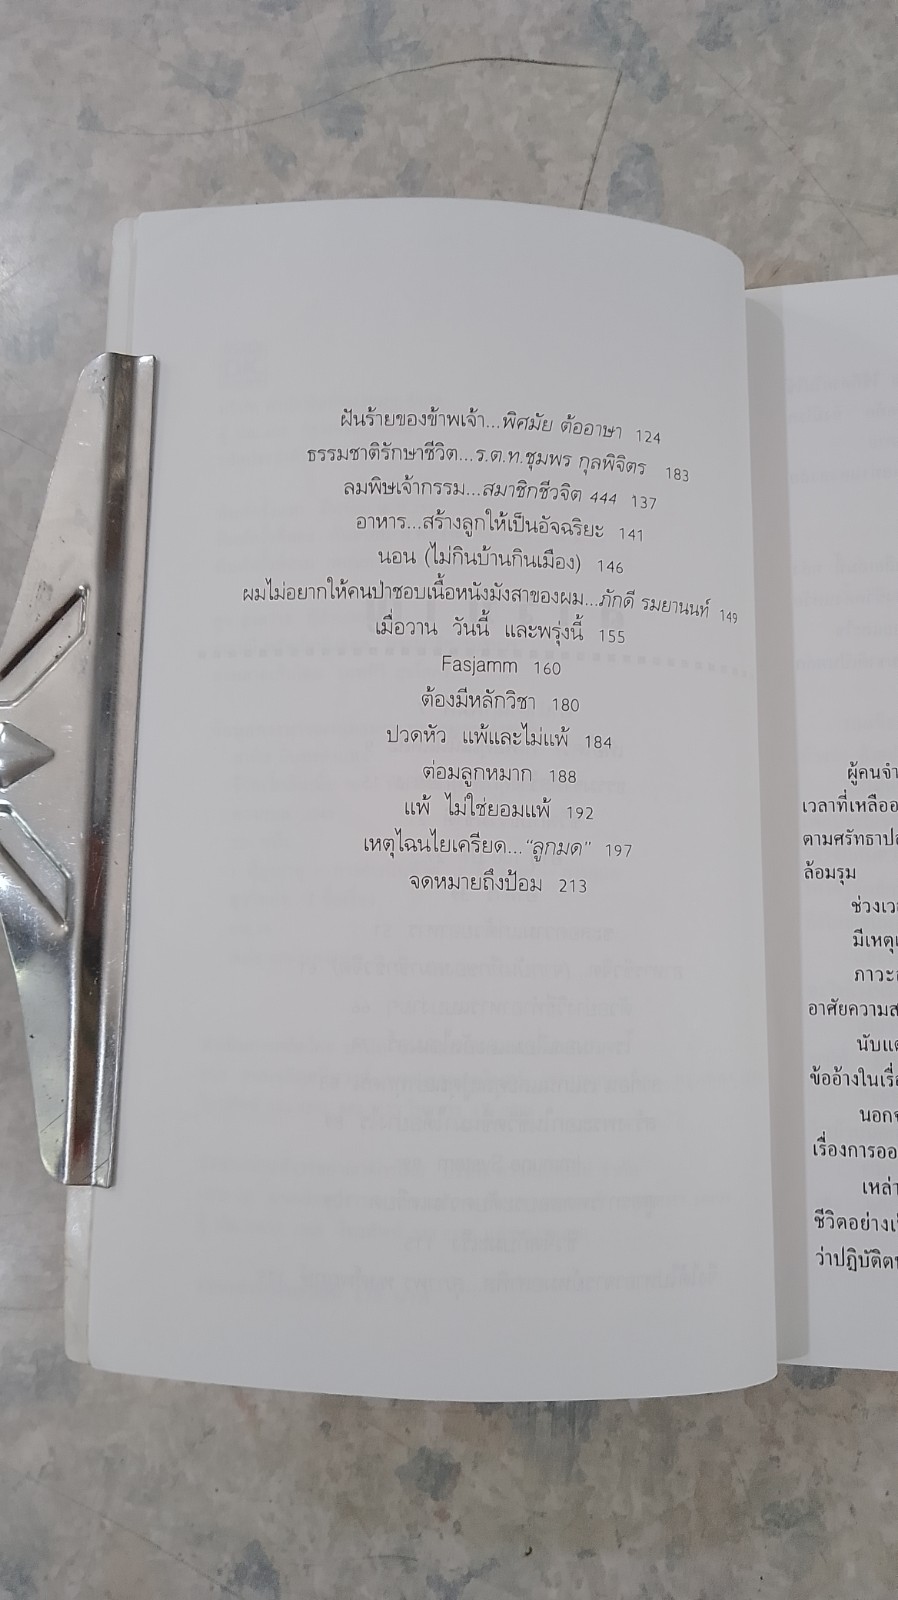 ฝันร้ายของข้าพเจ้า...พิศมัย ต้ออาษา 124
ธรรมชาติรักษาชีวิต...ร.ต.ท.ชุมพร กุลพิจิตร 183
ลมพิษเจ้ากรรม...สมาชิกชีวจิต 444 137
อาหาร...สร้างลูกให้เป็นอัจฉริยะ 141
นอน (ไม่กินบ้านกินเมือง) 146
ผมไม่อยากให้คนป่าชอบเนื้อหนังมังสาของผม...ภักดี รมยานนท์ 149
เมื่อวาน วันนี้ และพรุ่งนี้ 155
Fasjamm 160
ต้องมีหลักวิชา 180
ปวดหัว แพ้และไม่แพ้ 184
ต่อมลูกหมาก 188
แพ้ ไม่ใช่ยอมแพ้ 192
เหตุไฉนไยเครียด..."ลูกมด" 197
จดหมายถึงป้อม 213
ผู้คนจำ
เวลาที่เหลืออ
ตามศรัทธาปส
ล้อมรุม
ช่วงเว
มีเหตุเ
ภาวะ
อาศัยความส
นับแต
ข้ออ้างในเรื่อ
นอกจ
เรื่องการออ
เหล่า
ชีวิตอย่างเ
ว่าปฏิบัติต